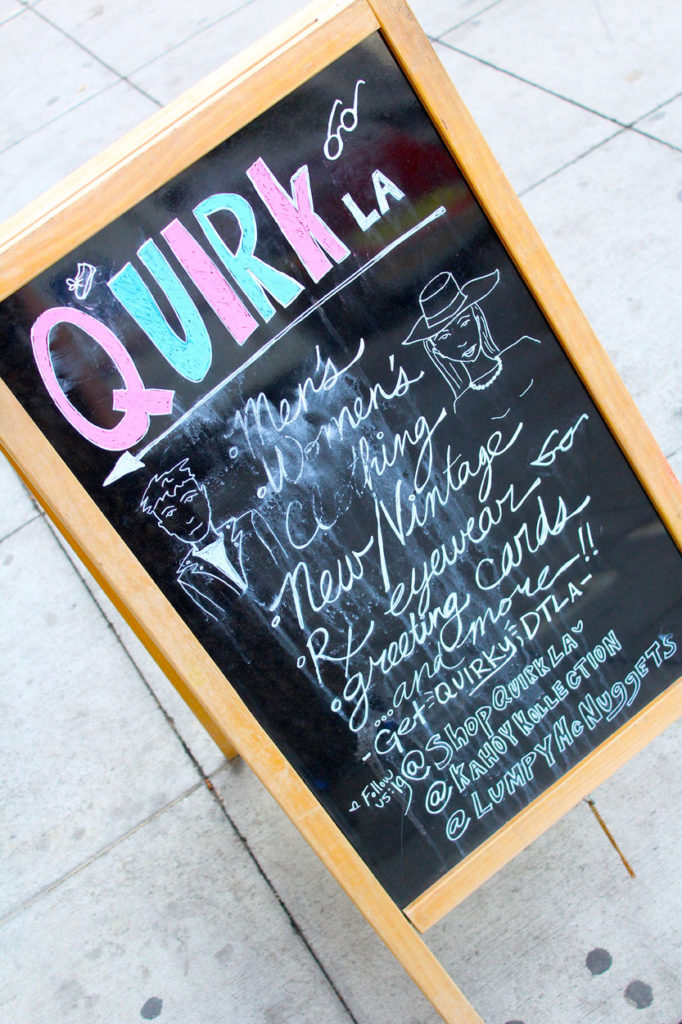 QUIRK LA
• Men's
• Women's
Clothing
• New/Vintage
• Rx eyewear
• greeting cards
...and more!!
- Get "QUIRKY" DTLA -
Follow us: ig @SHOPQUIRKLA
@KAHOYKOLLECTION
@LUMPYMcNuggETS